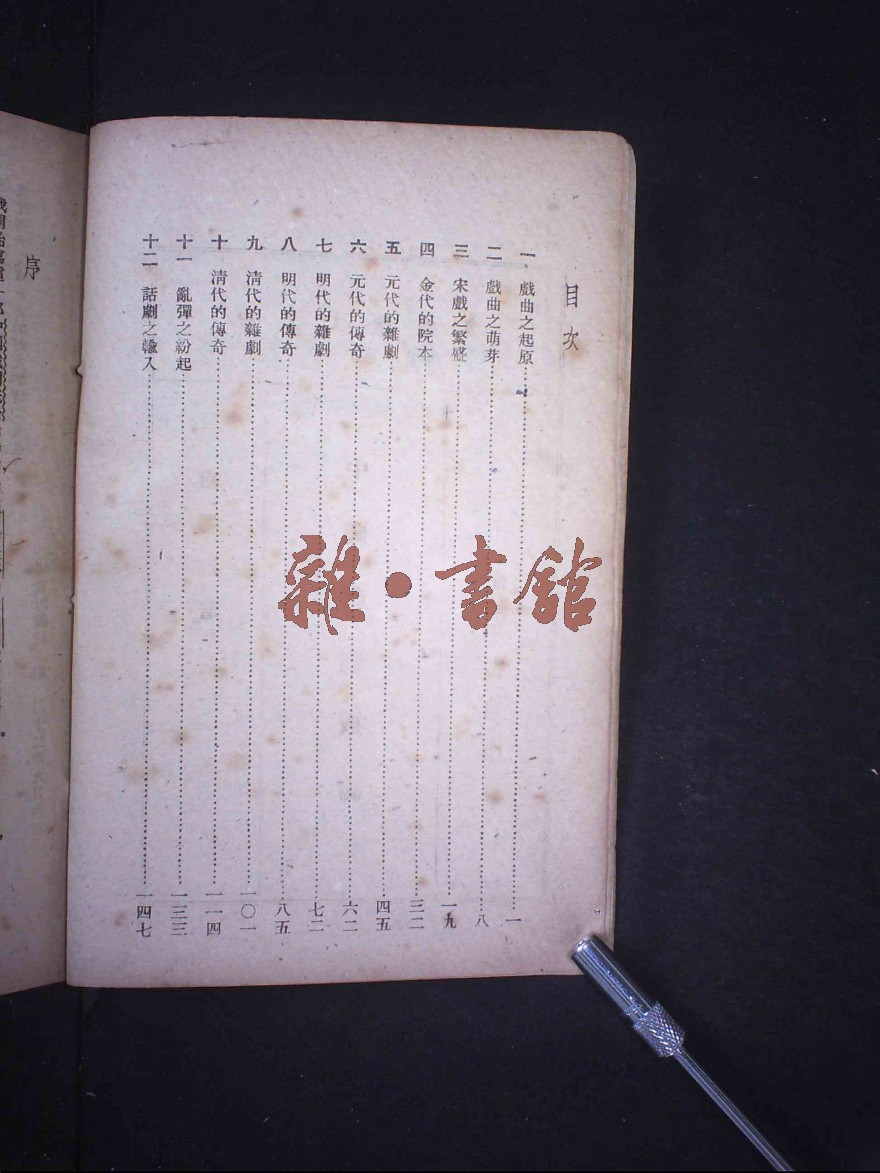 目次
一 戲曲之起原……一
二 戲曲之萌芽……八
三 宋戲之繁盛……一九
四 金代的院本……三二
五 元代的雜劇……四五
六 元代的傳奇……六二
七 明代的雜劇……七二
八 明代的傳奇……八五
九 清代的雜劇……一〇一
十 清代的傳奇……一一四
十一 亂彈之紛起……一三三
十二 話劇之輸入……一四七
雜·書館
序